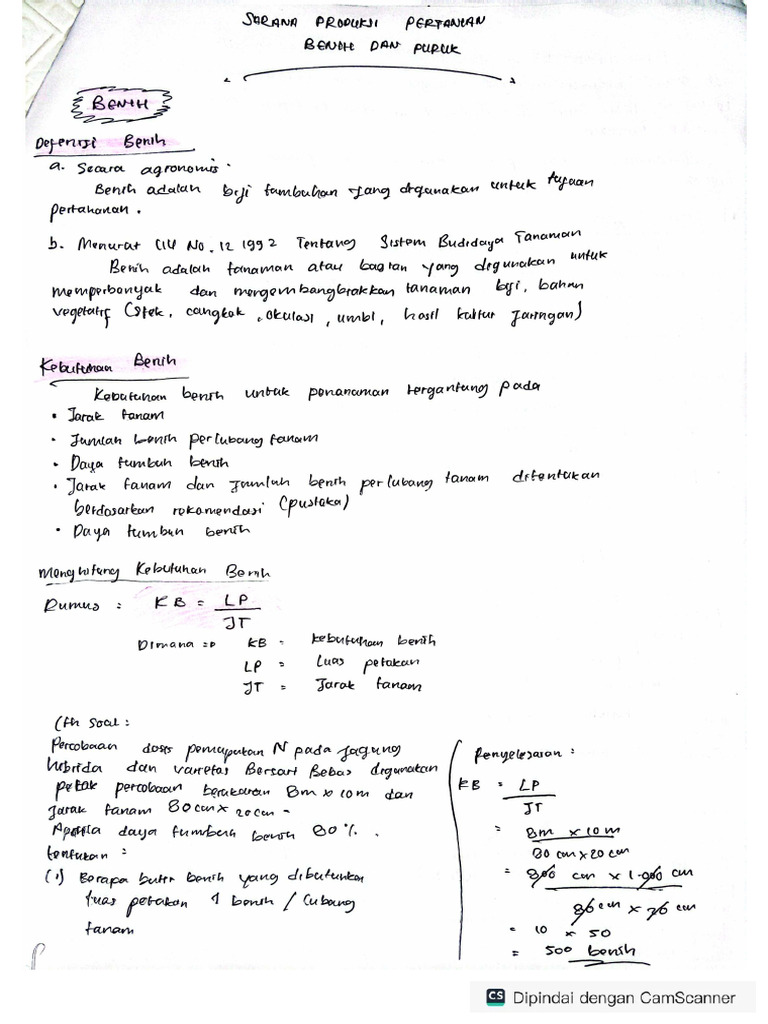 SARANA PRODUKSI PERTANIAN
BENIH DAN PUPUK
BENIH
Defenisi Benih
a. Secara agronomis.
Benih adalah biji tumbuhan yang digunakan untuk tujuan
pertahanan.
b. Menurut UU No. 12 1992 Tentang Sistem Budidaya Tanaman
Benih adalah tanaman atau bagian yang digunakan untuk
memperbanyak dan mengembangbiakkan tanaman biji, bahan
vegetatif (stek, cangkok, okulasi, umbi, hasil kultur jaringan)
Kebutuhan Benih
Kebutuhan benih untuk penanaman tergantung pada
• Jarak tanam
• Jumlah benih perlubang tanam
• Daya tumbuh benih
• Jarak tanam dan jumlah benih perlubang tanam ditentukan
berdasarkan rekomendasi (pustaka)
• Daya tumbuh benih
Menghitung Kebutuhan Benih
Rumus : KB = LP
JT
Dimana => KB = kebutuhan benih
LP = Luas petakan
JT = Jarak tanam
Cth Soal :
Percobaan dosis pemupukan N pada jagung
hibrida dan varietas Bersari Bebas digunakan
petak percobaan berukuran 8m x 10m dan
Jarak tanam 80 cm x 20 cm.
Apabila daya tumbuh benih 80%.
tentukan :
(1) Berapa butir benih yang dibutuhkan
luas petakan 1 benih / Lubang
tanam
Penyelesaian :
KB = LP
JT
= 8m x 10 m
80 cm x 20 cm
= 800 cm x 1.000 cm
80 cm x 20 cm
= 10 x 50
= 500 benih
CS Dipindai dengan CamScanner